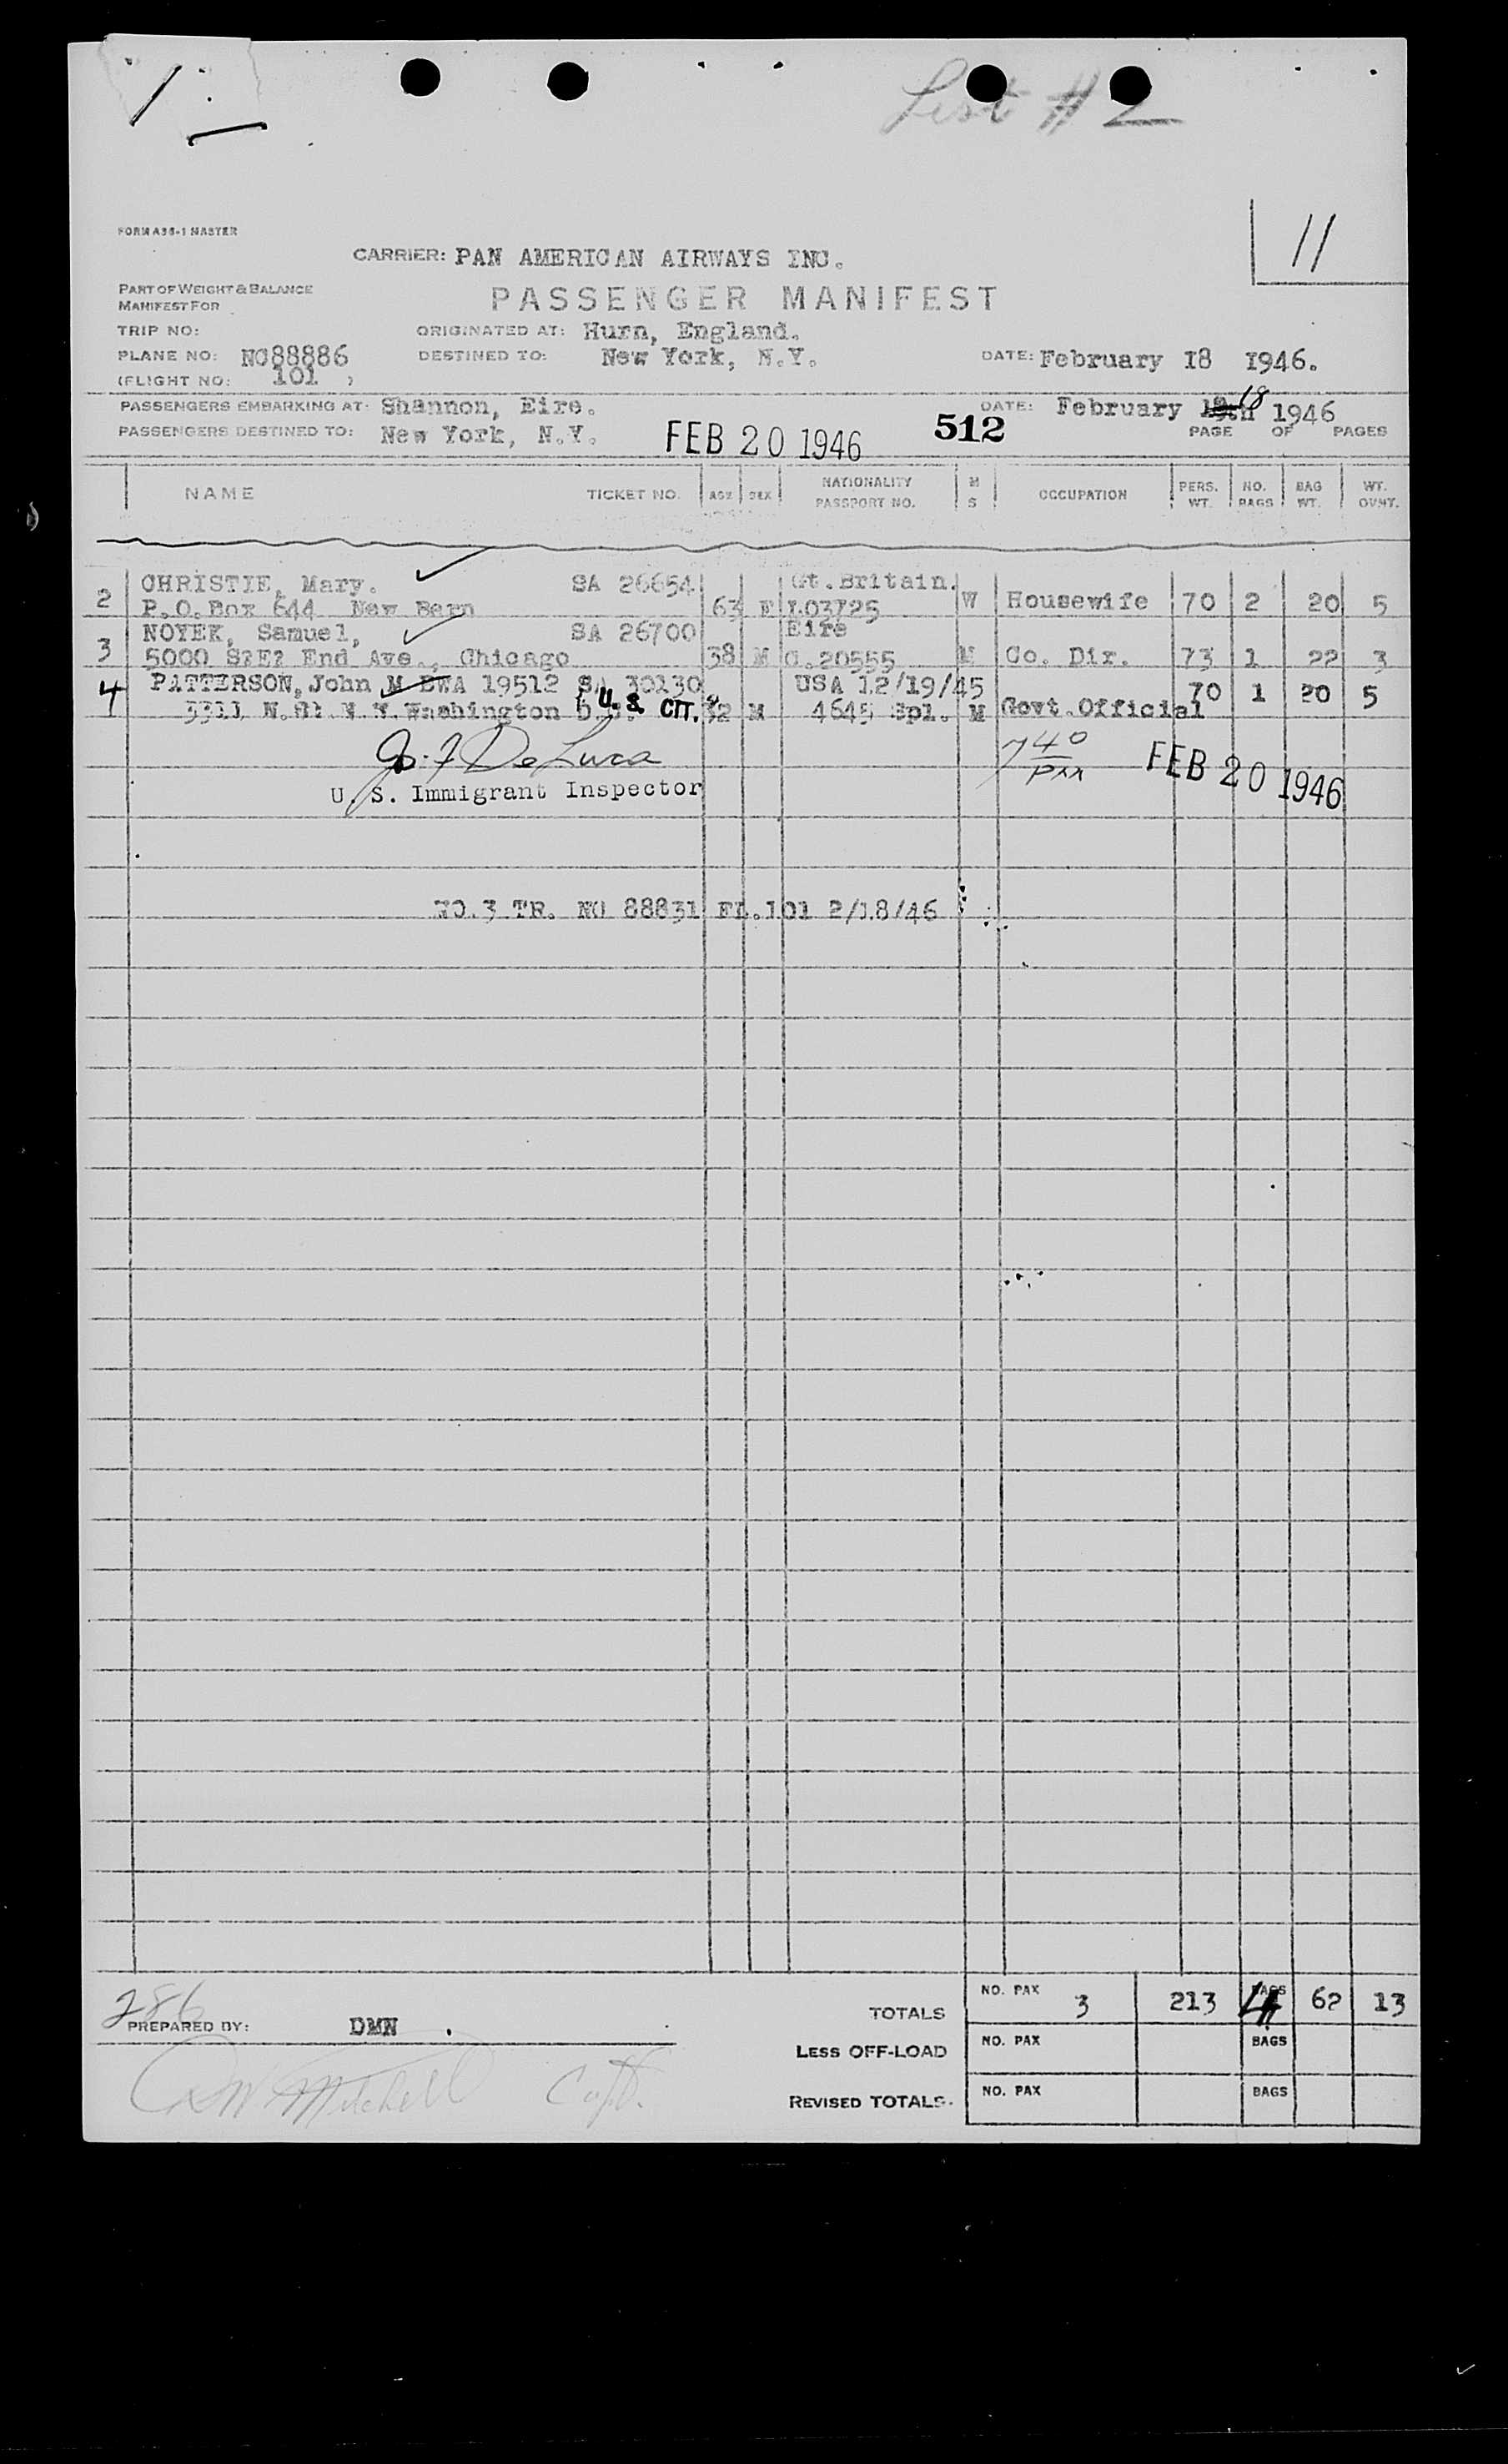 1
List # 2
11
FORM A36-1 MASTER
CARRIER: PAN AMERICAN AIRWAYS INC.
PART OF WEIGHT & BALANCE
MANIFEST FOR
PASSENGER MANIFEST
TRIP NO:
ORIGINATED AT: Hurn, England.
PLANE NO: NC88886
DESTINED TO: New York, N.Y.
DATE: February 18 1946.
(FLIGHT NO: 101 )
PASSENGERS EMBARKING AT: Shannon, Eire.
DATE: February 18 1946
PASSENGERS DESTINED TO: New York, N.Y.
FEB 20 1946
512
PAGE OF PAGES
NAME TICKET NO. AGE SEX NATIONALITY PASSPORT NO. M S OCCUPATION PERS. WT. NO. BAGS BAG WT. WT. OVHT.
2 CHRISTIE, Mary. SA 26654 Gt.Britain.
P.O.Box 644 New Bern 63 F L03725 W Housewife 70 2 20 5
3 NOYEK, Samuel, SA 26700 Eire
5000 S?E? End Ave., Chicago 38 M C.20555 M Co. Dir. 73 1 22 3
4 PATTERSON, John M EWA 19512 SA 30130 USA 12/19/45 70 1 20 5
3311 N.St N.W.Washington D.C. U.S. CIT. 32 M 4645 Spl. M Govt.Official
Jo. F DeLuca
740
pxx
FEB 20 1946
U. S. Immigrant Inspector
NO.3 TR. NO 88831 FL.101 2/18/46
286
PREPARED BY: DMN .
TOTALS NO. PAX 3 213 BAGS 4 62 13
LESS OFF-LOAD NO. PAX BAGS
REVISED TOTALS. NO. PAX BAGS
Mitchell Capt.